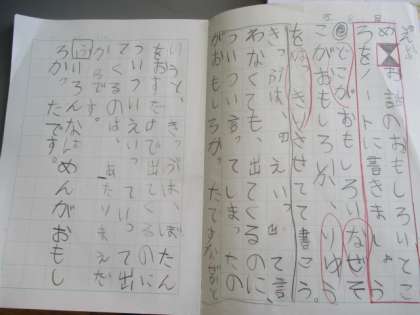 め お話のおもしろいとこ
ろをノートに書きましょう
どこがおもしろい なぜそ
こがおもしろいか、りゆう
をはっきりさせて書こう。
きっぷは、「えいっ」て言
わなくても、出てくるのに、
ついつい言ってしまったの
がおもしろかったです。なぜかと
いうと、きっぷは、ぼたん
をおすだけで出てくるのに
ついついえいっていって出
てくるのは、あたりまえだ
からです。
いろんなばめんがおもし
ろかったです。